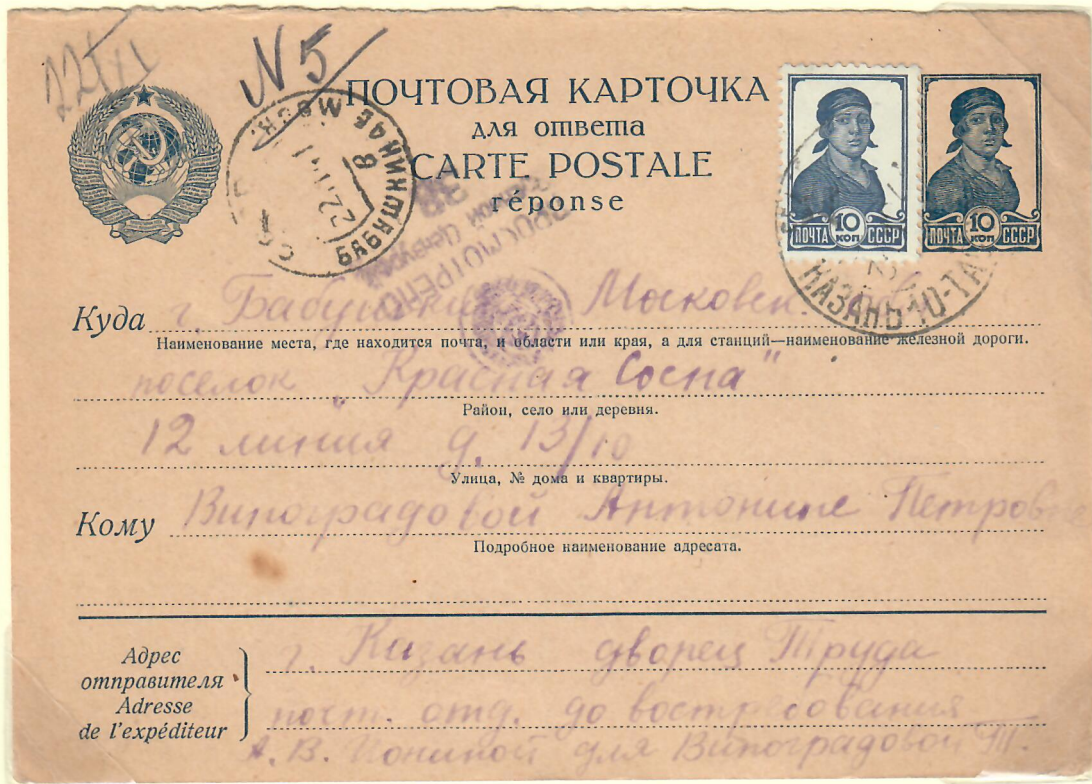 N5
ПОЧТОВАЯ КАРТОЧКА
для ответа
CARTE POSTALE
réponse
ПОЧТА 10 КОП СССР
ПОЧТА 10 КОП СССР
БАБУШКИН МОСК.
КАЗАНЬ-10
ПРОСМОТРЕНО
Военной Цензурой
Куда г. Бабушкин Московск.
Наименование места, где находится почта, и области или края, а для станций—наименование железной дороги.
поселок "Красная Сосна"
Район, село или деревня.
12 линия д. 13/10
Улица, № дома и квартиры.
Кому Виноградовой Антонине Петровне
Подробное наименование адресата.
Адрес
отправителя
Adresse
de l'expéditeur
г. Казань дворец Труда
почт. отд. до востребования
А. В. для Виноградовой Т.